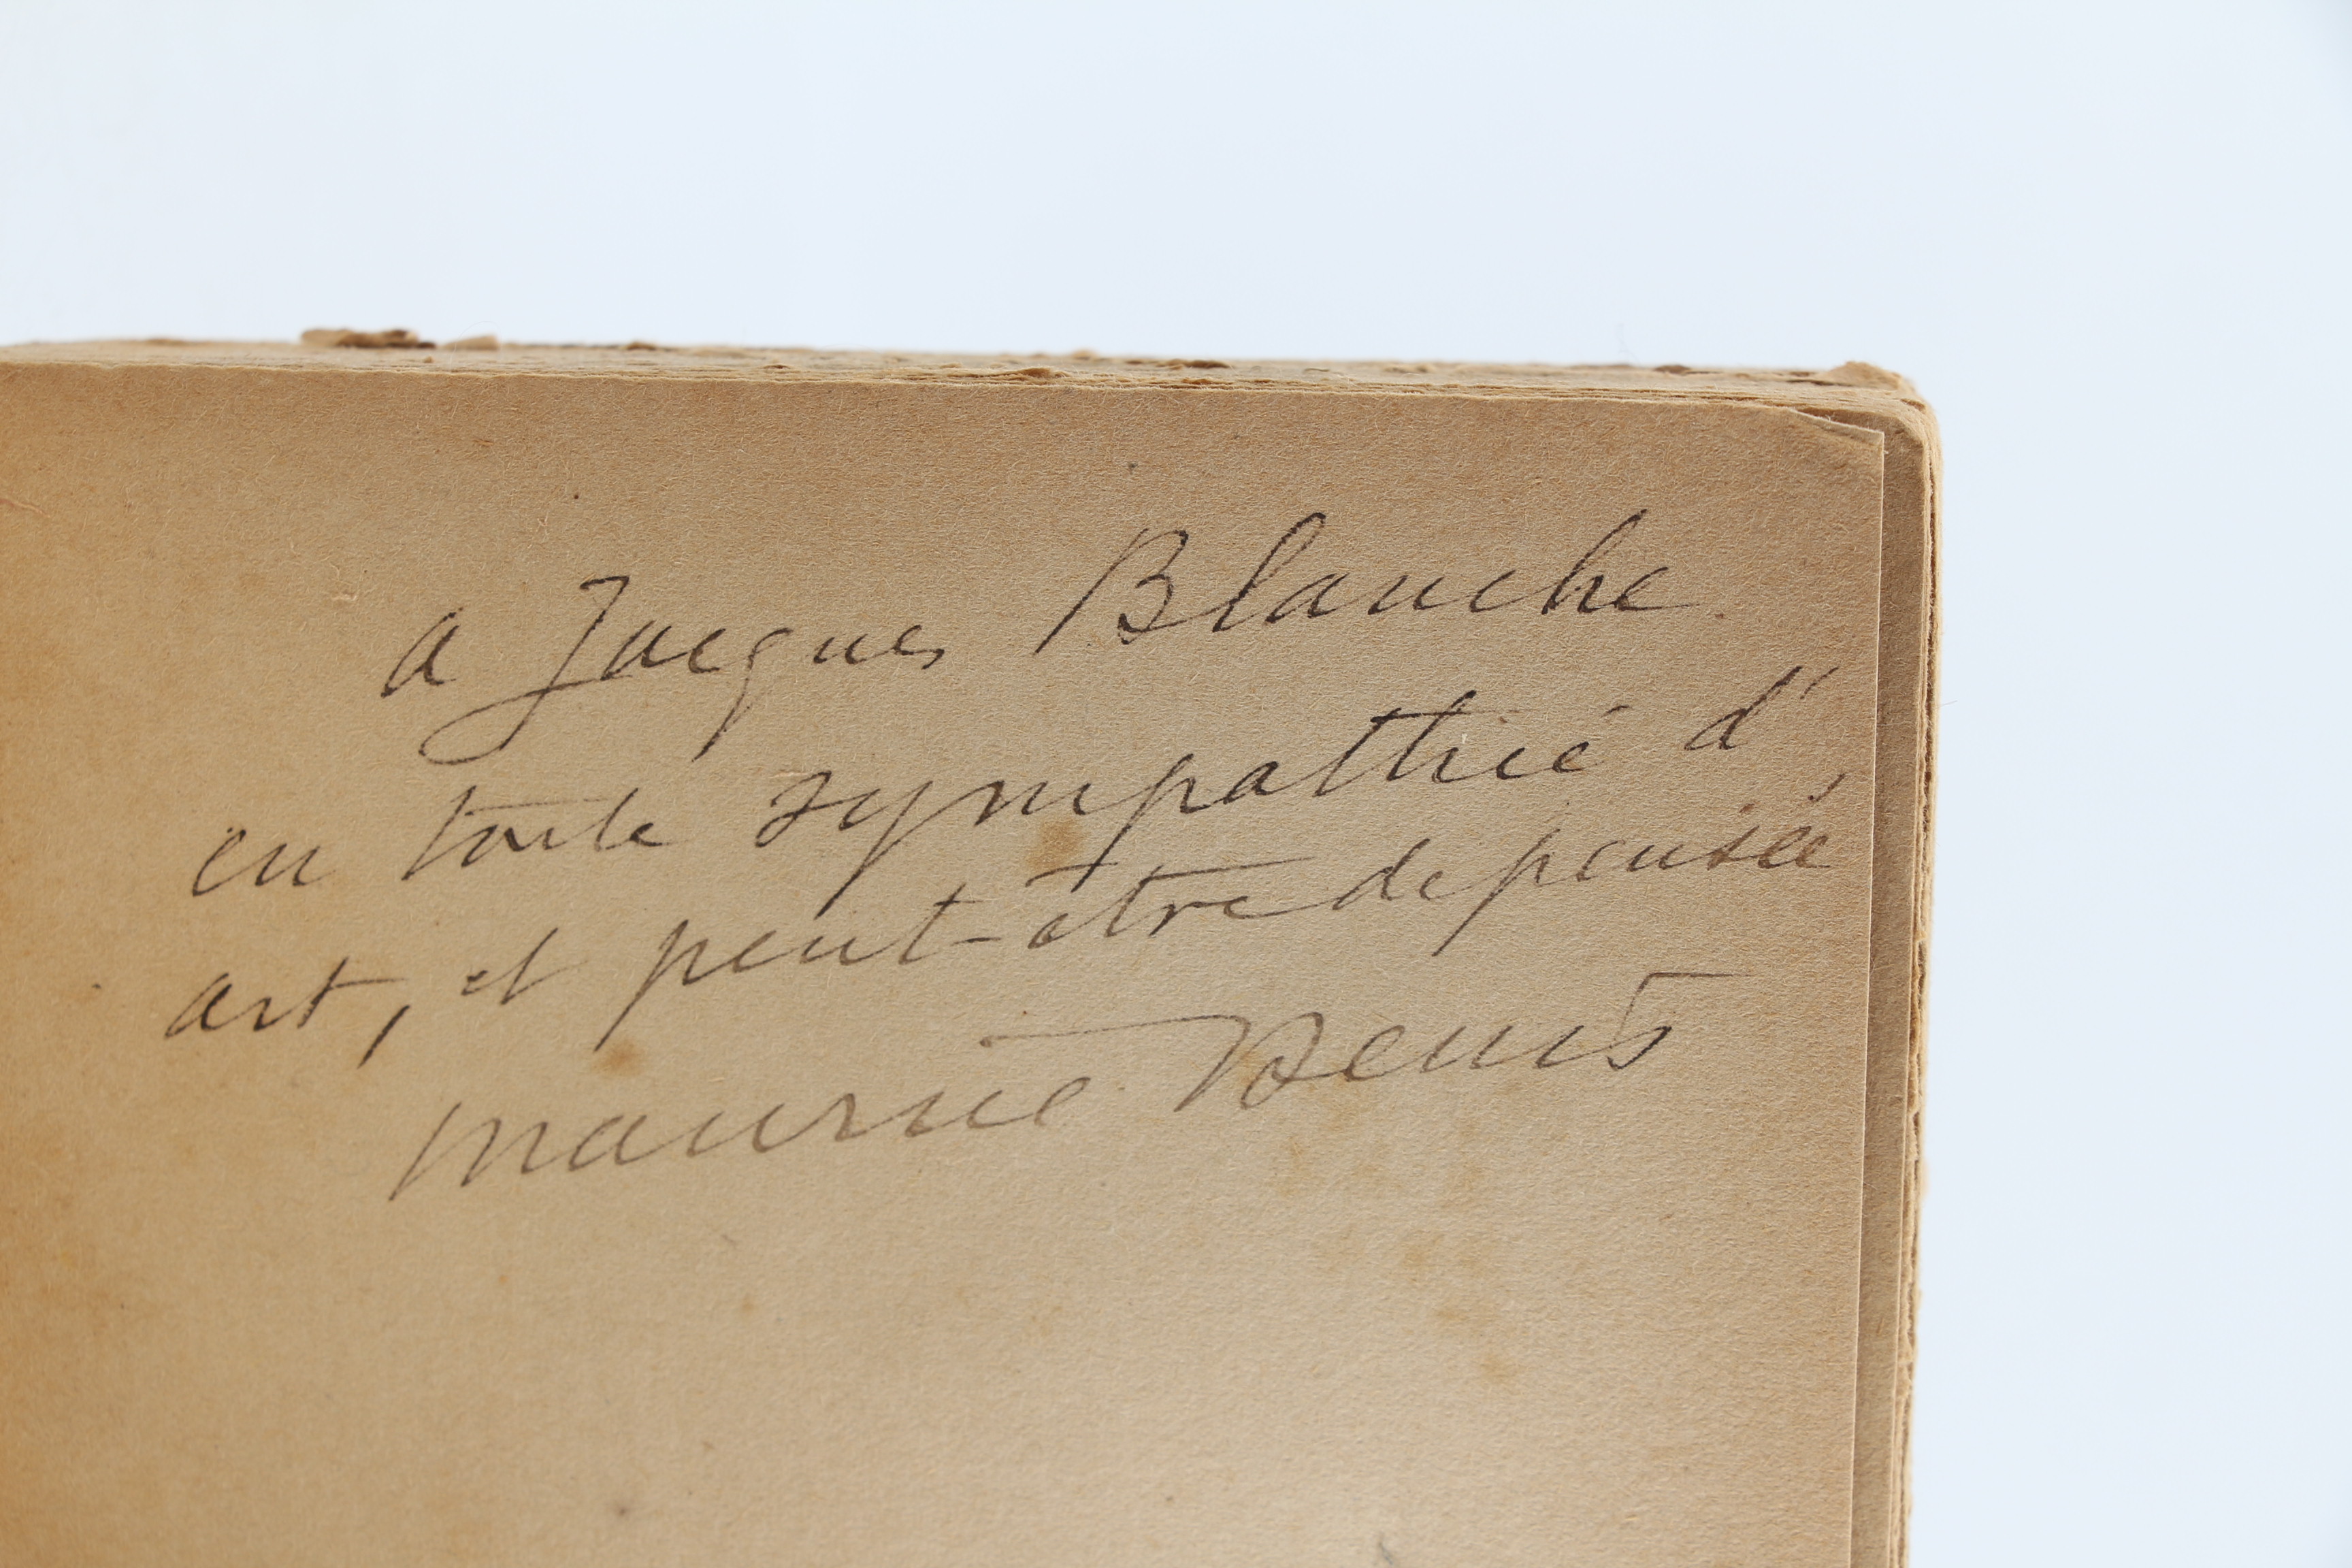 a Jacques Blanche
en toute sympathie d'
art, et peut-être de pensée,
Maurice Denis